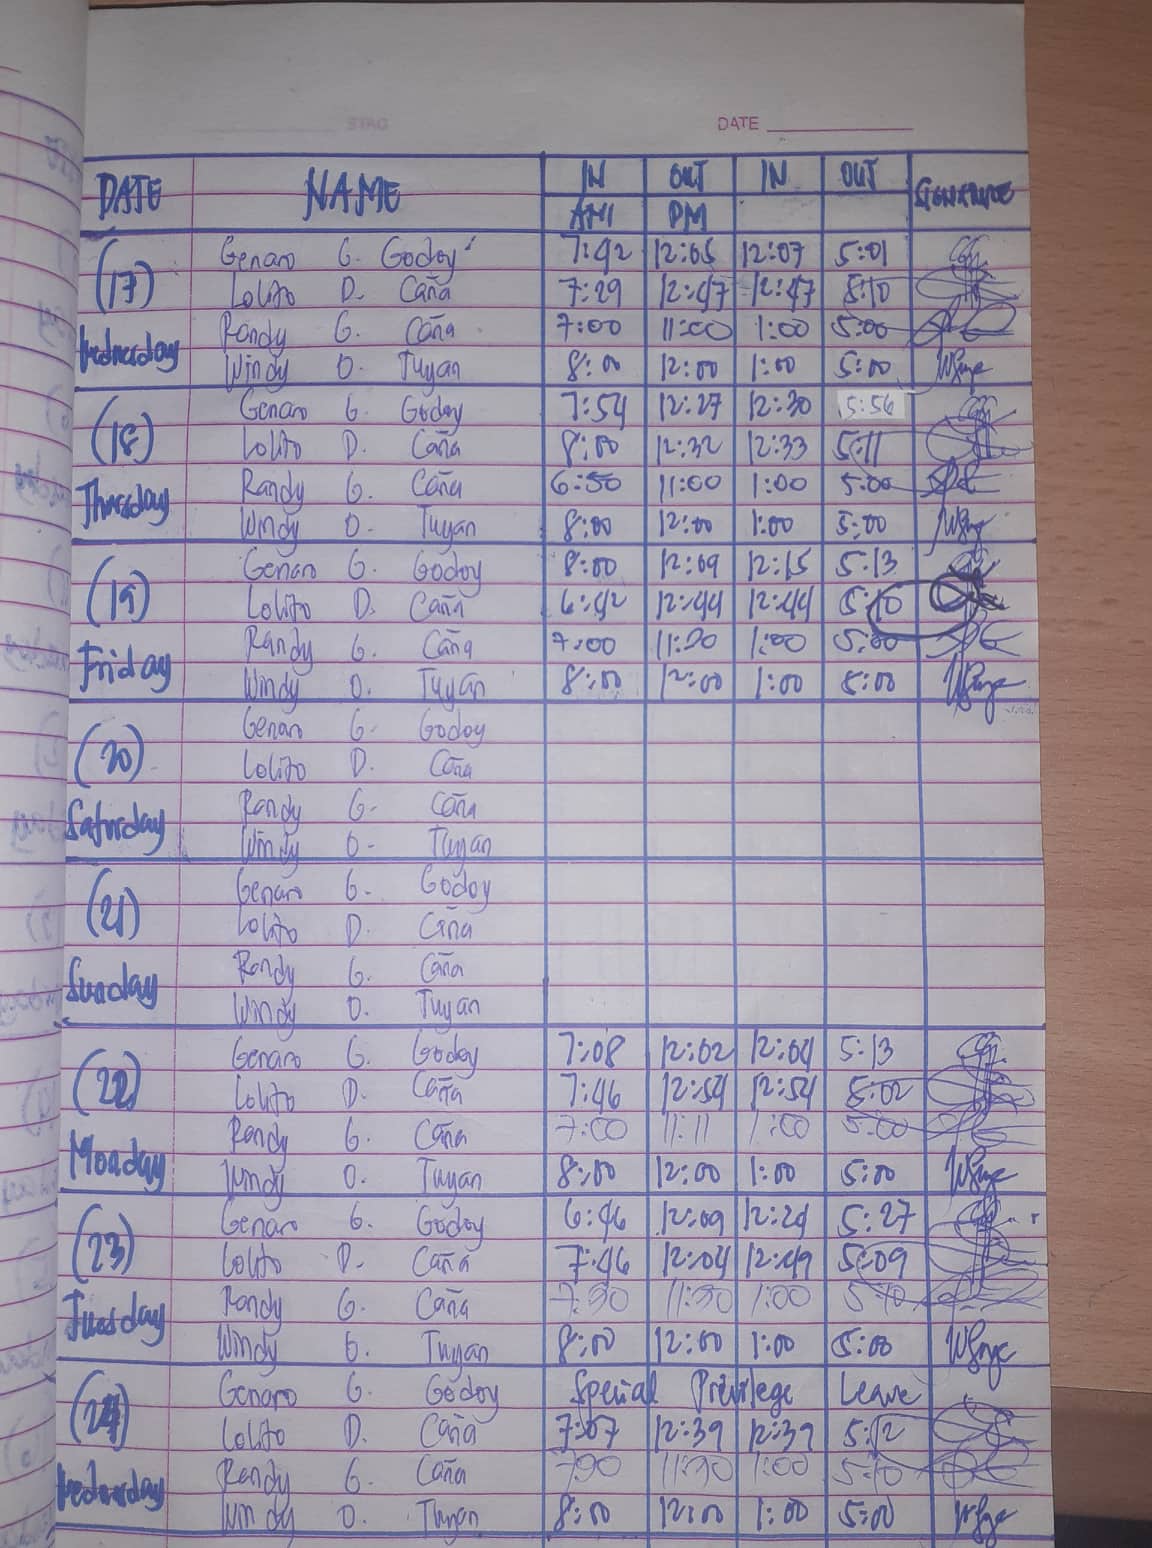 DATE
DATE NAME IN OUT IN OUT SIGNATURE
AM PM
(17) Wednesday
Genaro G. Godoy 7:42 12:05 12:07 5:01
Lolito D. Caña 7:29 12:47 12:47 5:10
Randy G. Caña 7:00 11:00 1:00 5:00
Windy O. Tuyan 8:00 12:00 1:00 5:00
(18) Thursday
Genaro G. Godoy 7:54 12:27 12:30 5:56
Lolito D. Caña 8:00 12:32 12:33 5:11
Randy G. Caña 6:50 11:00 1:00 5:00
Windy O. Tuyan 8:00 12:00 1:00 5:00
(19) Friday
Genaro G. Godoy 8:00 12:09 12:15 5:13
Lolito D. Caña 6:42 12:44 12:44 5:10
Randy G. Caña 7:00 11:30 1:00 5:00
Windy O. Tuyan 8:00 12:00 1:00 5:00
(20) Saturday
Genaro G. Godoy
Lolito D. Caña
Randy G. Caña
Windy O. Tuyan
(21) Sunday
Genaro G. Godoy
Lolito D. Caña
Randy G. Caña
Windy O. Tuyan
(22) Monday
Genaro G. Godoy 7:08 12:02 12:04 5:13
Lolito D. Caña 7:46 12:54 12:54 5:02
Randy G. Caña 7:00 11:11 1:00 5:00
Windy O. Tuyan 8:00 12:00 1:00 5:00
(23) Tuesday
Genaro G. Godoy 6:46 12:09 12:24 5:27
Lolito D. Caña 7:46 12:04 12:49 5:09
Randy G. Caña 7:30 11:30 1:00 5:10
Windy O. Tuyan 8:00 12:00 1:00 5:00
(24) Wednesday
Genaro G. Godoy Special Privilege Leave
Lolito D. Caña 7:07 12:39 12:39 5:12
Randy G. Caña 730 11:30 1:00 5:10
Windy O. Tuyan 8:00 12:00 1:00 5:00